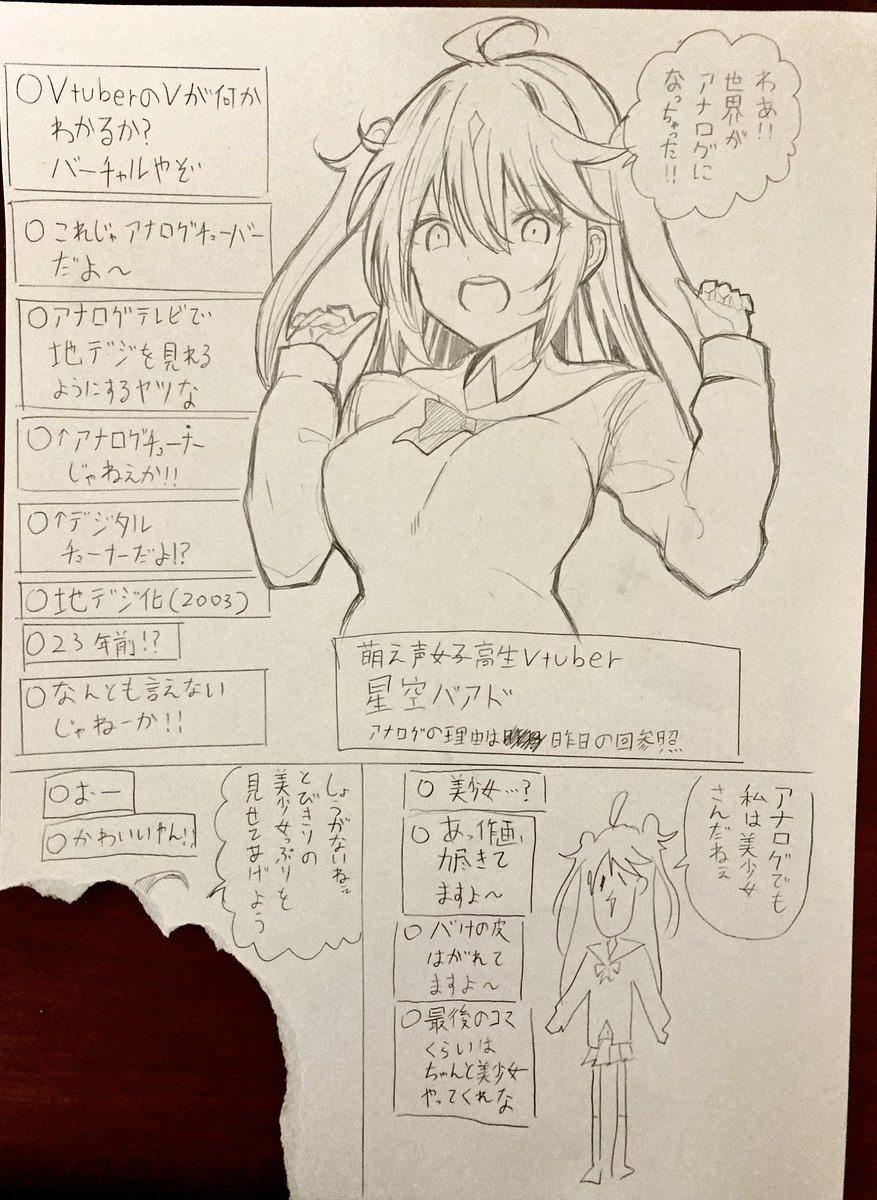 わあ!!
世界が
アナログに
なっちゃった!!
○VtuberのVが何か
わかるか?
バーチャルやぞ
○これじゃアナログチューバー
だよ〜
○アナログテレビで
地デジを見れる
ようにするヤツな
○↑アナログチューナー
じゃねえか!!
○↑デジタル
チューナーだよ!?
○地デジ化(2003)
○23年前!?
○なんとも言えない
じゃねーか!!
萌え声女子高生Vtuber
星空バアド
アナログの理由は昨日の回参照
アナログでも
私は美少女
さんだねぇ
○美少女…?
○あっ作画、
力尽きて
ますよ〜
○バケの皮
はがれて
ますよ〜
○最後のコマ
くらいは
ちゃんと美少女
やってくれな
しょうがないねぇ
とびきりの
美少女っぷりを
見せてあげよう
○おー
○かわいいやん!!